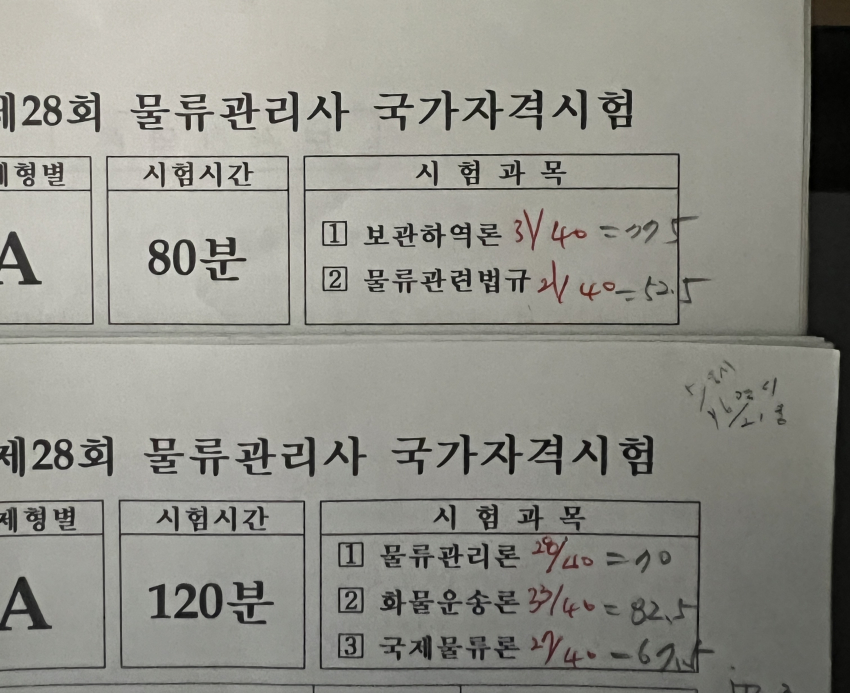 제28회 물류관리사 국가자격시험
제형별 시험시간 시험과목
A 80분
1 보관하역론 31/40 = 77.5
2 물류관련법규 21/40 = 52.5
제28회 물류관리사 국가자격시험
제형별 시험시간 시험과목
A 120분
1 물류관리론 28/40 = 70
2 화물운송론 33/40 = 82.5
3 국제물류론 27/40 = 67.5